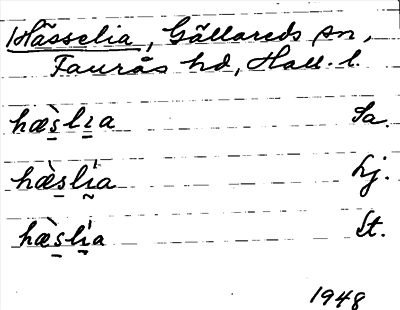 Hässelia, Gällareds sn,
Faurås hd, Hall. l.
hæ̀s̱li̱a Sa.
hæ̀s̱lḭ́a Lj.
hæ̀s̱lí̱a St.
1948